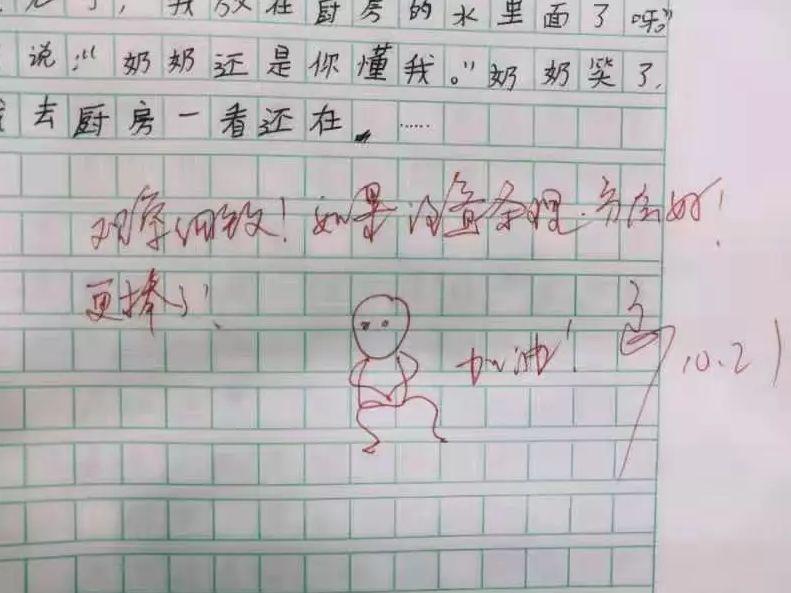 我放在厨房的水里面了呀。”
说：“奶奶还是你懂我。”奶奶笑了，
去厨房一看还在，……
观察细致！如果注意条理，分层好！
更棒了！
加油！
10.21